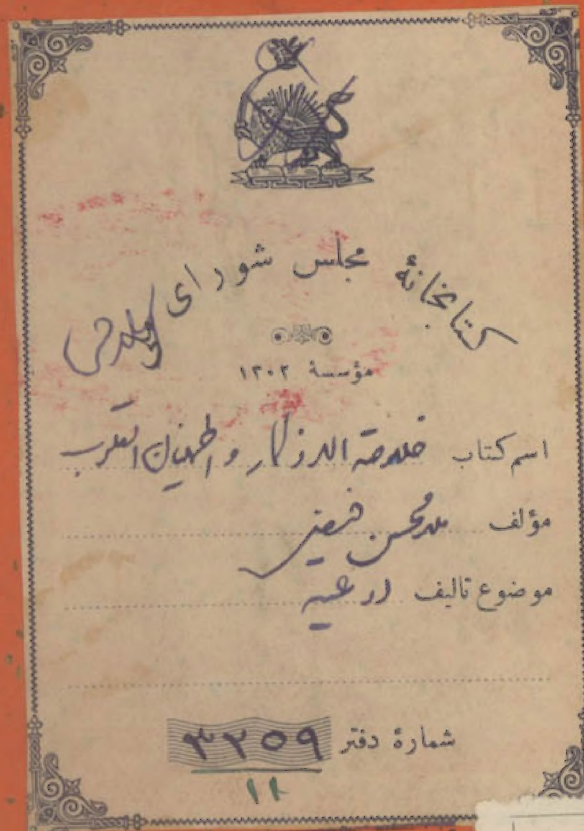 کتابخانهٔ مجلس شورای اسلامی
مؤسسهٔ ۱۳۰۲
اسم کتاب خلاصة الاذکار و اطمینان القلوب
مؤلف ملا محسن فیض
موضوع تالیف ادعیه
شمارهٔ دفتر ۳۳۵۹
۱۱